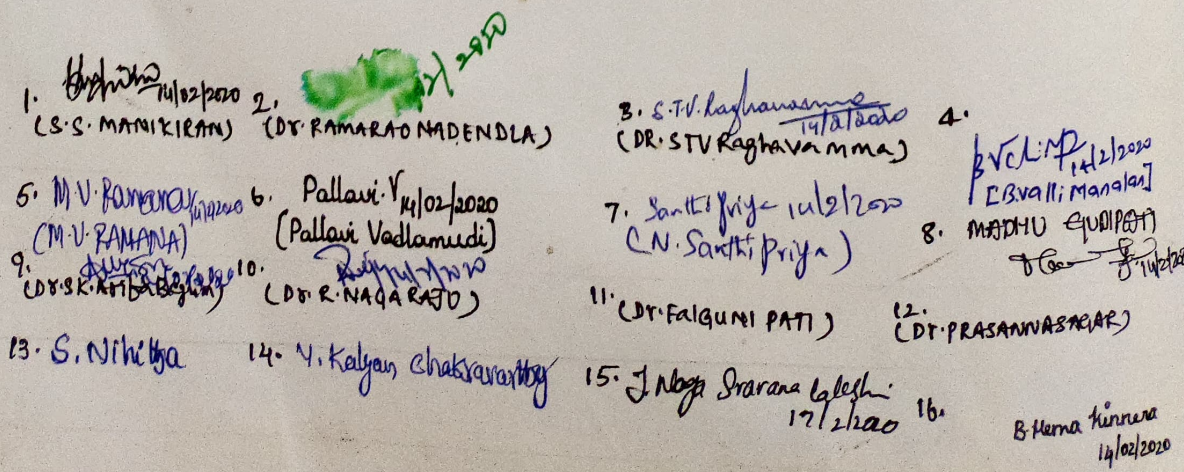 1. 14/02/2020
(S.S. MANIKIRAN)
2. /2/2020
(Dr. RAMARAO NADENDLA)
3. S.T.V. Raghavamma
14/2/2020
(DR. STV Raghavamma)
4.
14/2/2020
[B.Valli Manalan]
5. M.V. Ramana 14/2/2020
(M.V. RAMANA)
6. Pallavi.V 14/02/2020
[Pallavi Vadlamudi]
7. Santhi priya 14/2/2020
(N. Santhi priya)
8. MADHU GUDIPATI
14/2/20
9.
(Dr. SK. Begum)
10.
(Dr. R. NAGARAJU)
11. (Dr. FALGUNI PATI)
12.
(Dr. PRASANNASAGAR)
13. S. Nihitha
14. Y. Kalyan Chakravarthy
15. J Naga Sravana
17/2/2020
16.
B. Hema Kinnera
14/02/2020